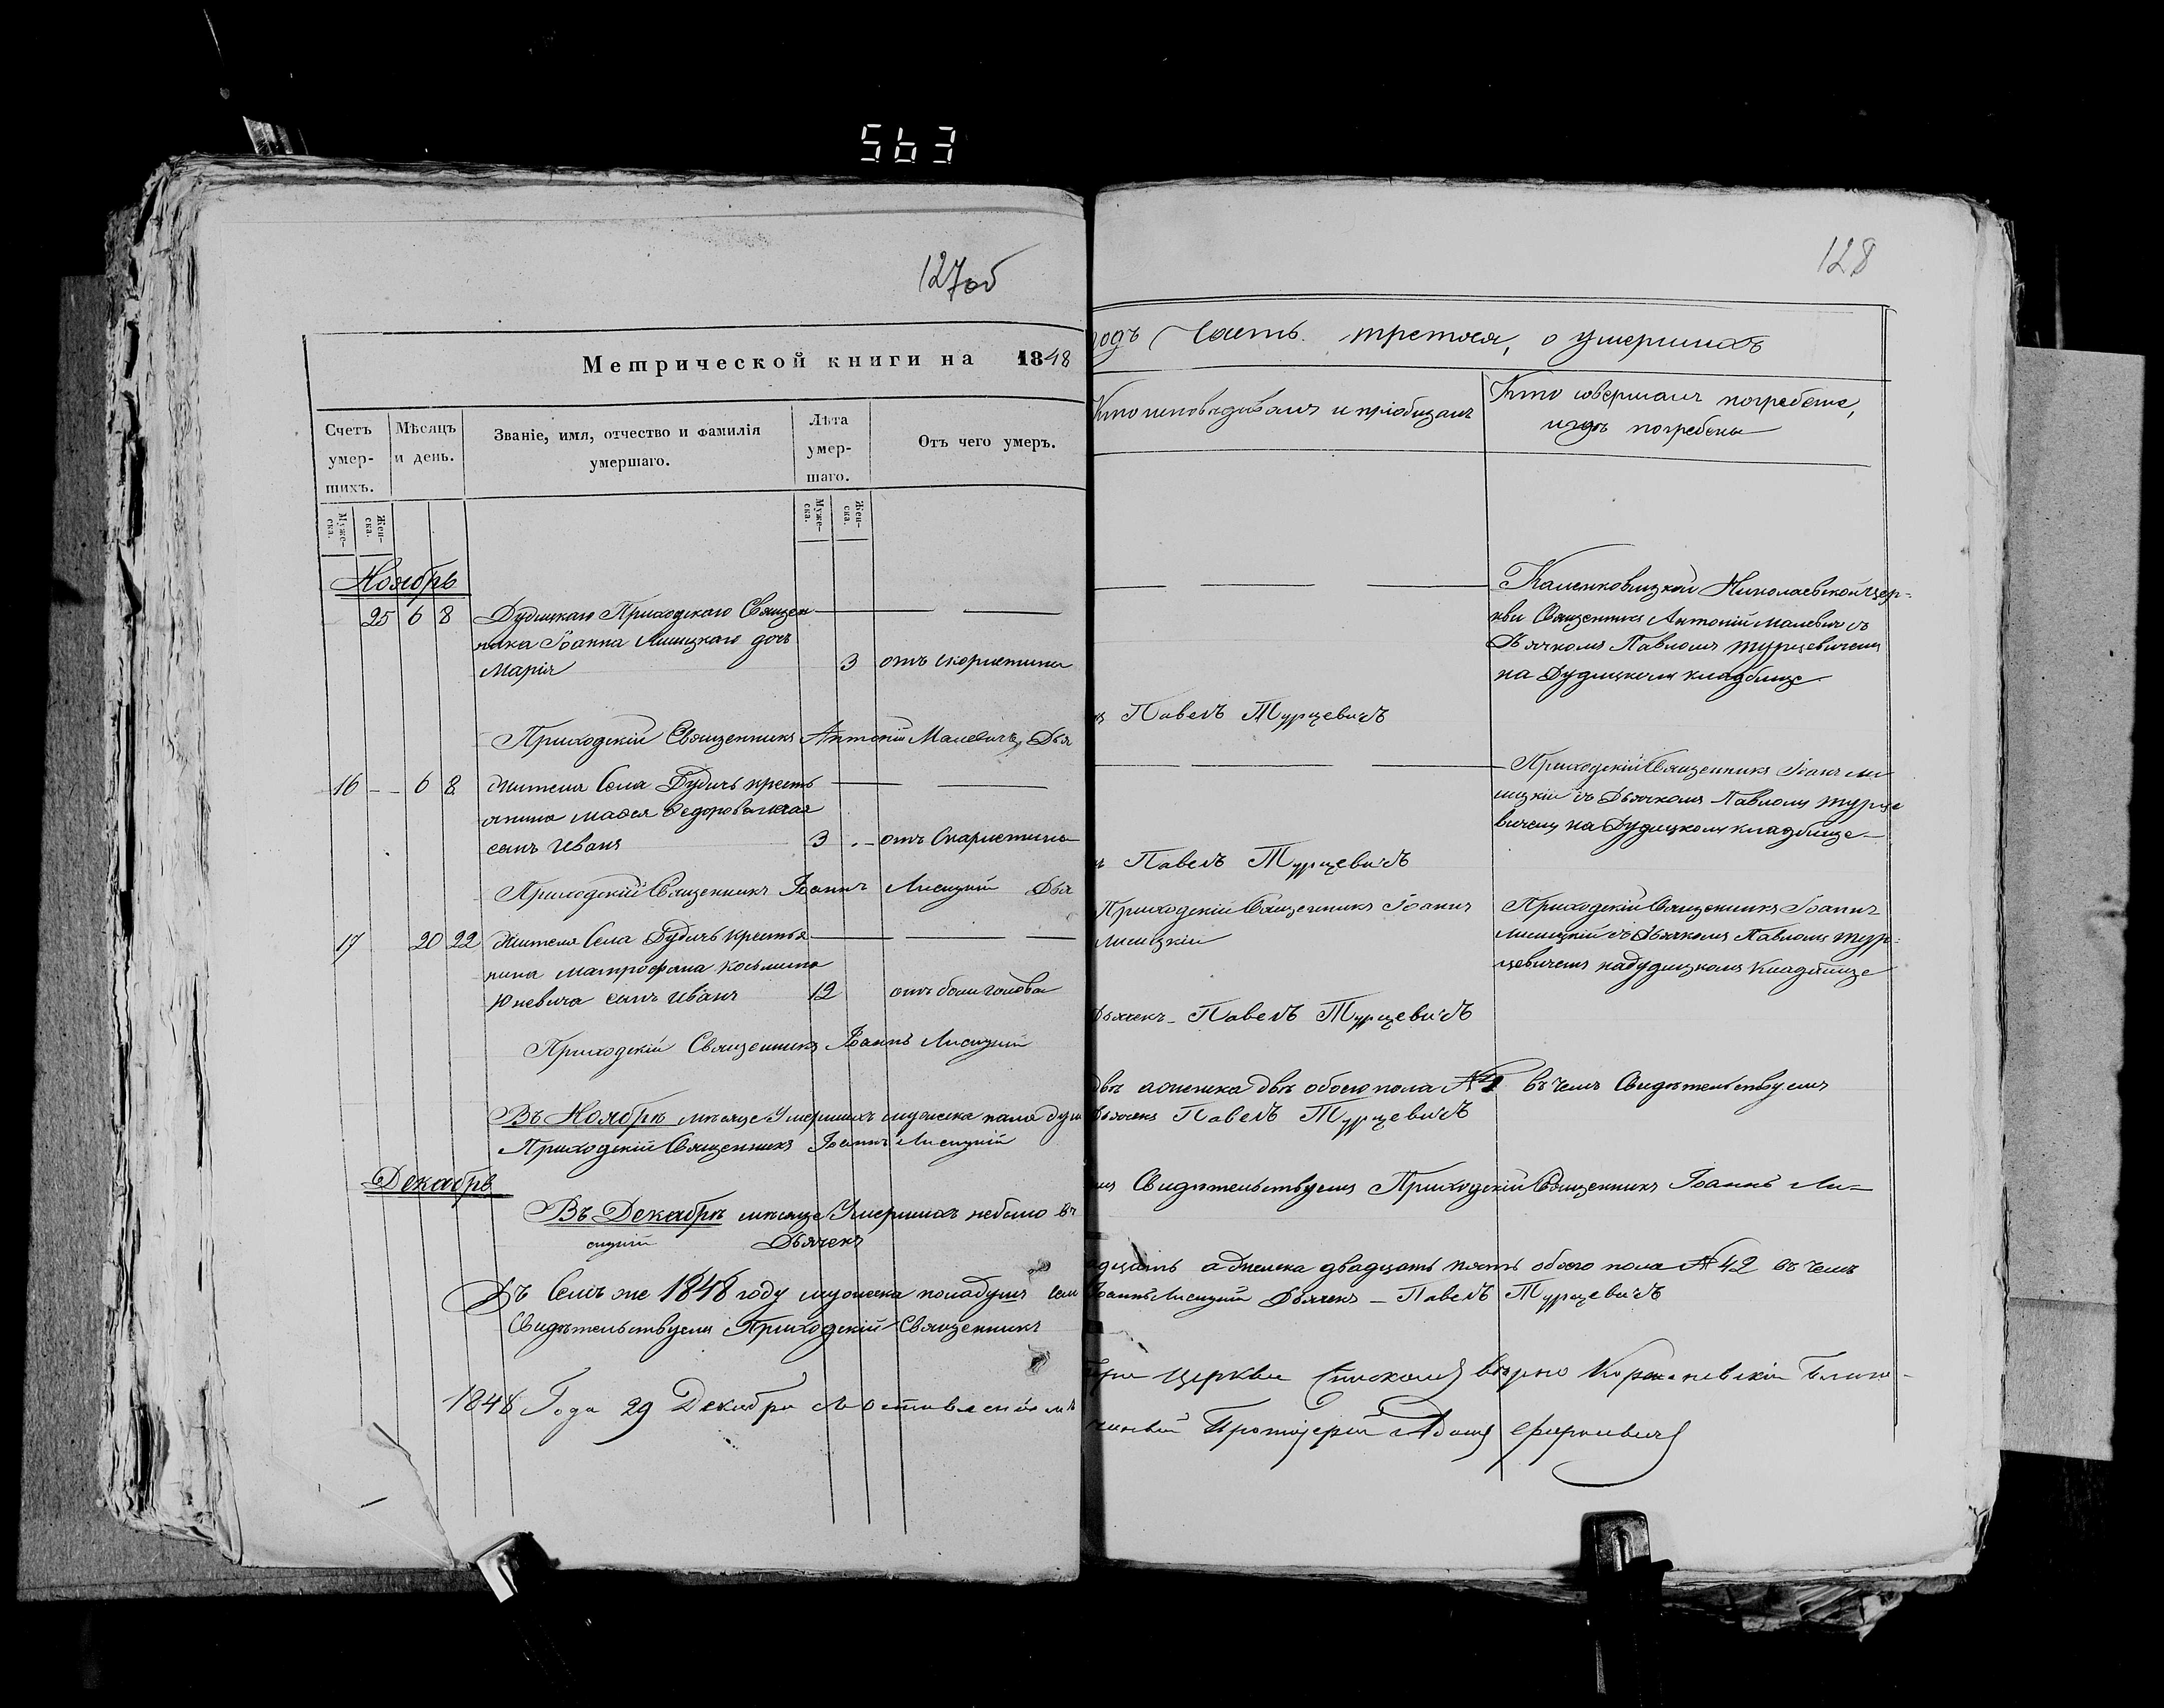 563
127об
128
Метрической книги на 1848
годъ Часть третяя, о умершихъ
Счетъ умер-шихъ.
Мѣсяцъ и день.
Званіе, имя, отчество и фамилія умершаго.
Лѣта умер-шаго.
Отъ чего умеръ.
Кто исповѣдывалъ и пріобщалъ
Кто совершалъ погребеніе,
и гдѣ погребены
Муже-ска.
Жен-ска.
Муже-ска.
Жен-ска.
Ноябрь
25 6 8 Дудицкаго Приходскаго Священ
ника Іоанна Лисицкаго дочь
Марія 3 отъ скорлетины
Каменковицкой Николаевской Цер-
кви Священникъ Антоній Малевич съ
Дьячкомъ Павломъ Турцевичемъ
на Дудицкомъ кладбище
Приходскій Священникъ Антоній Малевичъ, Дья
Павелъ Турцевичъ
16 6 8 Жителя Села Дудичъ кресть
янина Федорова
сынъ Иванъ 3 отъ Скарлетины
Приходскій Священникъ Іоан Ли
сицкій съ Дьячкомъ Павломъ Турце
вичемъ на Дудицкомъ кладбище
Приходскій Священникъ Іоаннъ Лисицкій Дья
Павелъ Турцевичъ
17 20 22 Жителя Села Дудичъ крестья
нина Матрофана Косьмина
Юневича сынъ Иванъ 12 отъ боли головы
Приходскій Священникъ Іоаннъ
Лисицкій
Приходскій Священникъ Іоаннъ
Лисицкій съ Дьячкомъ Павломъ Тур-
цевичемъ на дудицкомъ Кладбище
Приходскій Священникъ Іоаннъ Лисицкій
Дьячекъ Павелъ Турцевичъ
Въ Ноябрѣ мѣсяце Умершихъ мужеска пола душ
двѣ а женска двѣ обоего пола № въ чемъ Свидѣтельствуемъ
Приходскій Священникъ Іоаннъ Лисицкій
Дьячекъ Павелъ Турцевичъ
Декабрь
Въ Декабрѣ мѣсяце Умершихъ небыло въ
Свидѣтельствуемъ Приходскій Священникъ Іоаннъ Ли-
сицкій Дьячекъ
Въ Семъ же 1848 году мужеска пола душъ сем
адцать а женска двадцать пять обоего пола № 42 въ чемъ
Свидѣтельствуемъ Приходскій Священникъ
Іоаннъ Лисицкій Дьячекъ - Павелъ Турцевичъ
1848 Года 29 Декабря
при Церкви Спискомъ вѣрно Благо-
чинный Протоіерей Адамъ